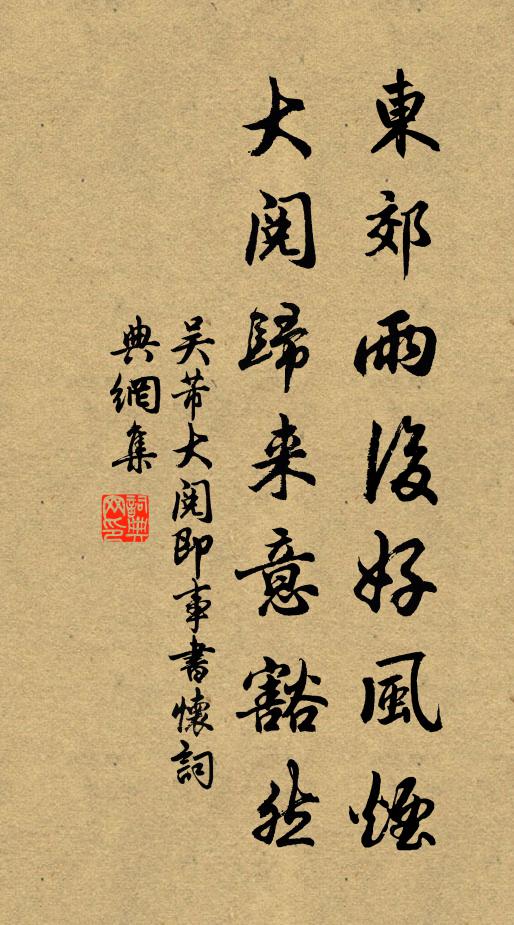 東郊雨後好風煙
大閱歸来意豁然
吴芾大閱即事書懷詞
典網集
詞典網印